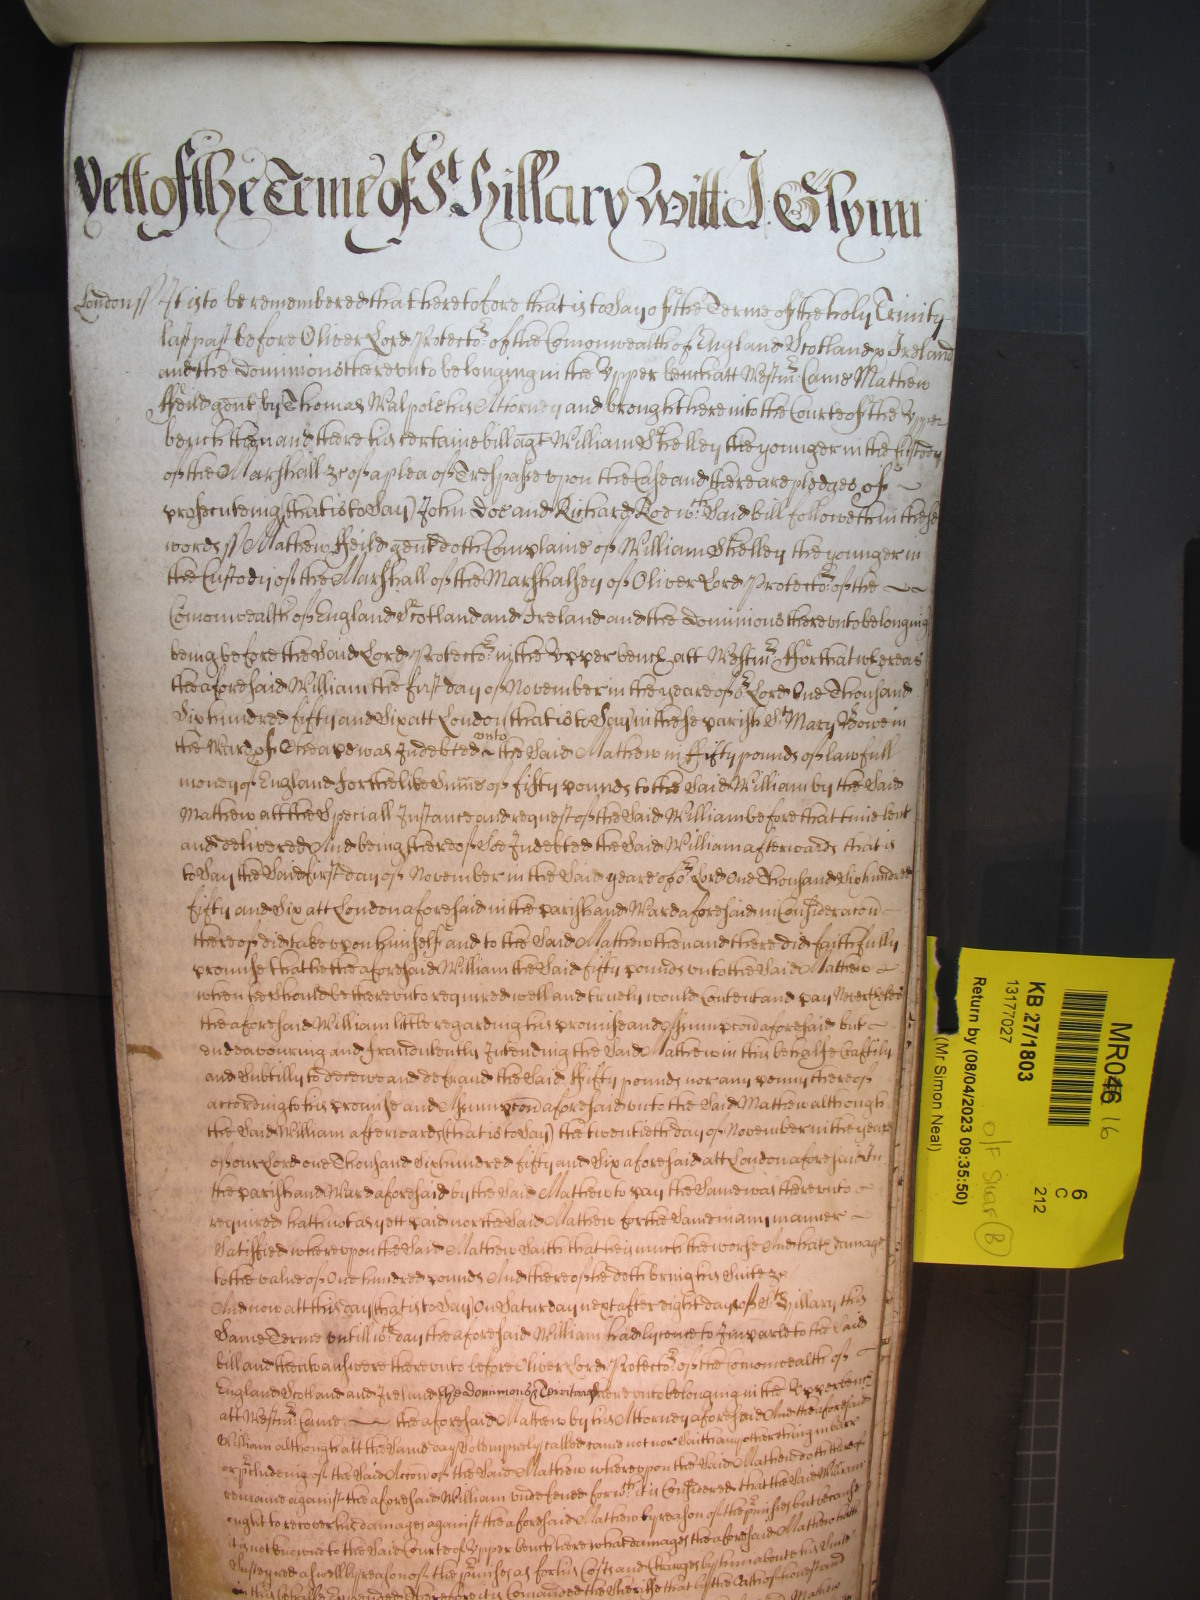 Yett of the Terme of St. Hillary Witt J. Glynn
London ss It is to be remembered that heretofore that is to say of the Terme of the holy Trinity
last past before Oliver Lord Protector of the Comonwealth of England Scotland & Ireland
and the Dominions thereunto belonging in the Upper bench att Westmr. Came Mathew
ffeild gent by Thomas Walpole his Attorney and brought here into the Courte of the Upper
bench then and there his certaine bill agt William Skelley the younger in the Custody
of the Marshall &c of a plea of Trespasse upon the Case and there are pledges of
prosecuteing (that is to say) John Doe and Richard Roe wch. said bill followeth in these
words ss Mathew ffeild gent doth Complaine of William Skelley the younger in
the Custody of the Marshall of the Marshalsey of Oliver Lord Protector of the
Comonwealth of England Scotland and Ireland and the Dominions thereunto belonging
being before the said Lord Protector in the Upper bench att Westmr. ffor that whereas
the aforesaid William the first day of November in the yeare of or Lord One Thousand
Six hundred fifty and Six att London that is to say in the parish St Mary Bowe in
the Ward of Cheape was Indebted unto the said Mathew in ffifty pounds of lawfull
money of England for the like Summe of fifty pounds to the said William by the said
Mathew att the Speciall Instance and request of the said William before that time lent
and delivered And being thereof soe Indebted the said William afterwards that is
to say the said first day of November in the said yeare of or Lord One Thousand Six hundred
fifty and Six att London aforesaid in the parish and Ward aforesaid in Consideracon
thereof did take upon himself and to the said Mathew then and there did faithfully
promise that he the aforesaid William the said fifty pounds unto the said Mathew
when hee should be thereunto required well and truely would Content and pay Neverthelesse
the aforesaid William little regarding his promise and Assumpcon aforesaid but
endeavouring and fraudulently Intending the said Mathew in this behalfe Craftily
and Subtilly to deceive and defraud the said ffifty pounds nor any penny thereof
according to his promise and Assumpcon aforesaid unto the said Mathew although
the said William afterwards (that is to say) the twentieth day of November in the yeare
of our Lord one Thousand Six hundred fifty and Six aforesaid att London aforesaid In
the parish and Ward aforesaid by the said Mathew to pay the same was thereunto
required hath not as yett paid nor the said Mathew for the same in any manner
Satisfied whereupon the said Mathew saith that he is much the worse And hath damage
to the value of One hundred pounds And thereof he doth bring his Suite &c
And now att this day (that is to say) On Saturday next after eight dayes of St. Hillary this
same Terme untill wch. day the aforesaid William had lycence to Imparle to the said
bill and then to answere thereunto before Oliver Lord Protector of the Comonwealth of
England Scotland and Ireland the dominions & Territories thereunto belonging in the Upper bench
att Westmr. Came the aforesaid Mathew by his Attorney aforesaid And the aforesaid
William although att the same day Solempnely called came not nor saith any other thing in barr
or precludeing of the said Accon of the said Mathew whereupon the said Mathew doth thereof
remaine against the aforesaid William undefended for wch. it is Considered that the said William
ought to recover his damages against the aforesaid Mathew by reason of the premisses but because
it is not knowne to the said Courte of Upper bench here what damages the aforesaid Mathew hath
Susteyned as well by reason of the premisses as for his Costs and Charges by him about his Suite
in this behalfe Therefore it is Comanded the Sheriffe that by the Oath of honest and
MR046 16
KB 27/1803
13177027
Return by (08/04/2023 09:35:50)
(Mr Simon Neal)
6
C
212
B